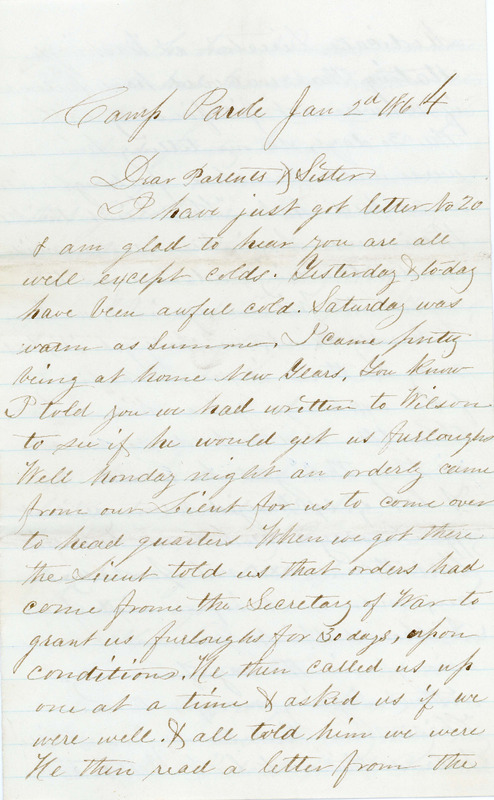 Camp Parole Jan 2d 1864
Dear Parents & Sister
I have just got letter No 20
& am glad to hear you are all
well except colds. Yesterday & today
have been awful cold. Saturday was
warm as Summer. I came pretty
being at home New Years. You know
I told you we had written to Wilson
to see if he would get us furloughs
Well Monday night an orderly came
from our Lieut for us to come over
to head quarters When we got there
the Lieut told us that orders had
come frome the Secretary of War to
grant us furloughs for 30 days, upon
conditions. He then called us up
one at a time & asked us if we
were well. & all told him we were
He then read a letter from the